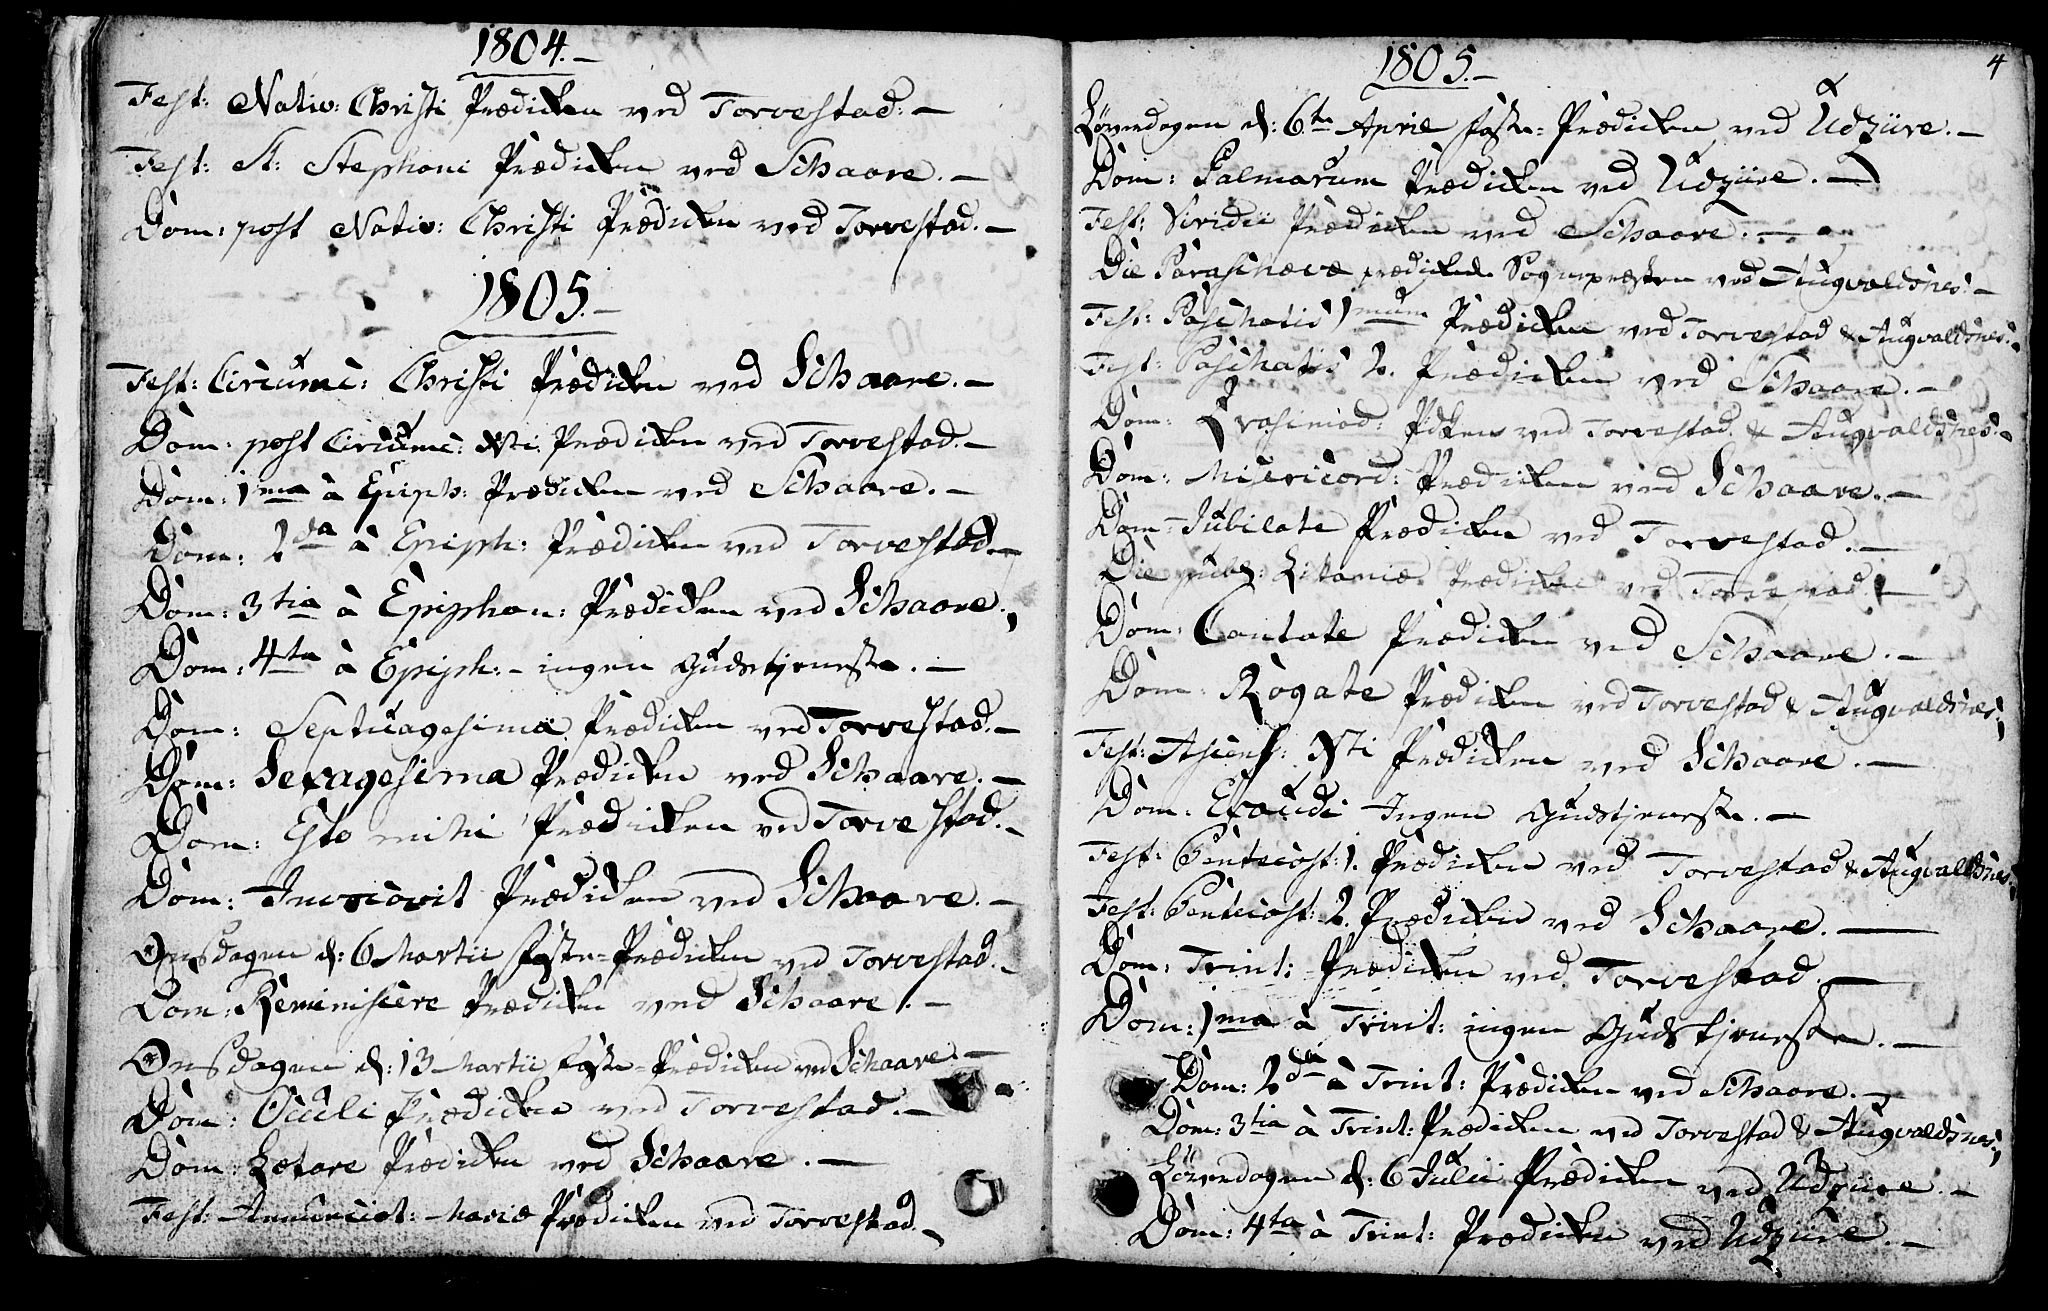 1804.-
Fest: Nativ: Christi Prædiken ved Torvestad.-
Fest: St: Stephani Prædiken ved Schaare.-
Dom: post Nativ: Christi Prædiken ved Torvestad.-
1805.-
Fest: Circumc: Christi Prædiken ved Schaare.-
Dom: post Circumc: Xti Prædiken ved Torvestad.-
Dom: 1ma à Epiph: Prædiken ved Schaare.-
Dom: 2da à Epiph: Prædiken ved Torvestad.-
Dom: 3tia à Epiphan: Prædiken ved Schaare.
Dom: 4ta à Epiph:- ingen Gudstjeneste.-
Dom: Septuagesima Prædiken ved Torvestad.-
Dom: Sexagesima Prædiken ved Schaare.-
Dom: Esto mihi Prædiken ved Torvestad.-
Dom: Invocavit Prædiken ved Schaare.-
Onsdagen d: 6 Martii Faste-Prædiken ved Torvestad.-
Dom: Reminiscere Prædiken ved Schaare.-
Onsdagen d: 13 Martii Faste-Prædiken ved Schaare.-
Dom: Oculi Prædiken ved Torvestad.-
Dom: Lætare Prædiken ved Schaare.-
Fest: Annunciat: Mariæ Prædiken ved Torvestad.-
4
1805.-
Løverdagen d: 6te April Faste-Prædiken ved Udzüre.-
Dom: Palmarum Prædiken ved Udzüre.-
Fest: Viridii Prædiken ved Schaare.-
Die Paraschevæ prædikede Sognepræsten ved Augvaldsnes.-
Fest: Paschatis 1mum Prædiken ved Torvestad & Augvaldsnes.
Fest: Paschatis 2. Prædiken ved Schaare.-
Dom: Qvasimod: Pdken ved Torvestad & Augvaldsnes.-
Dom: Misericord: Prædiken ved Schaare.-
Dom: Jubilate Prædiken ved Torvestad.-
Die publ: Litaniæ Prædiken ved Torvestad.-
Dom: Cantate Prædiken ved Schaare.-
Dom: Rogate Prædiken ved Torvestad & Augvaldsnes.
Fest: Ascens: Xti Prædiken ved Schaare.-
Dom: Exaudi Ingen Gudstjeneste.-
Fest: Pentecost: 1. Prædiken ved Torvestad & Augvaldsnes.
Fest: Pentecost: 2. Prædiken ved Schaare.-
Dom: Trint:- Prædiken ved Torvestad.-
Dom: 1ma à Trint: ingen Gudstjeneste.-
Dom: 2da à Trint: Prædiken ved Schaare.-
Dom: 3tia à Trint: Prædiken ved Torvestad & Augvaldsnes.
Løverdagen d: 6 Julii Prædiken ved Udzüre.-
Dom: 4ta à Trint: Prædiken ved Udzüre.-